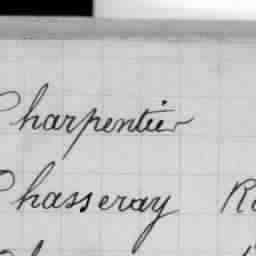 Charpentier
Chasseray